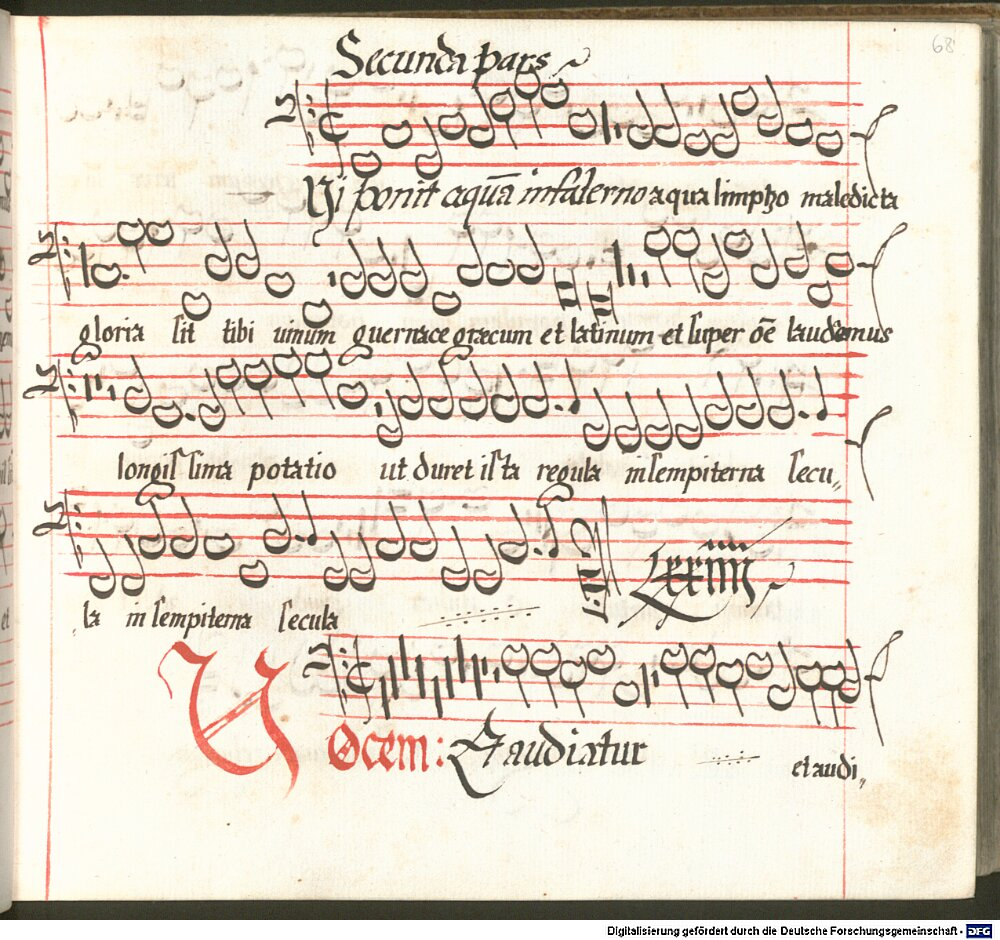 68
Secunda pars
Qui ponit aquā in falerno aqua limpho maledicta
gloria sit tibi unum guernace græcum et latinum et super oē laudemus
longissima potatio ut duret ista regula in sempiterna secu
la in sempiterna secula
LXXIIII
Vocem: Et audiatur
et audi
Digitalisierung gefördert durch die Deutsche Forschungsgemeinschaft - DFG